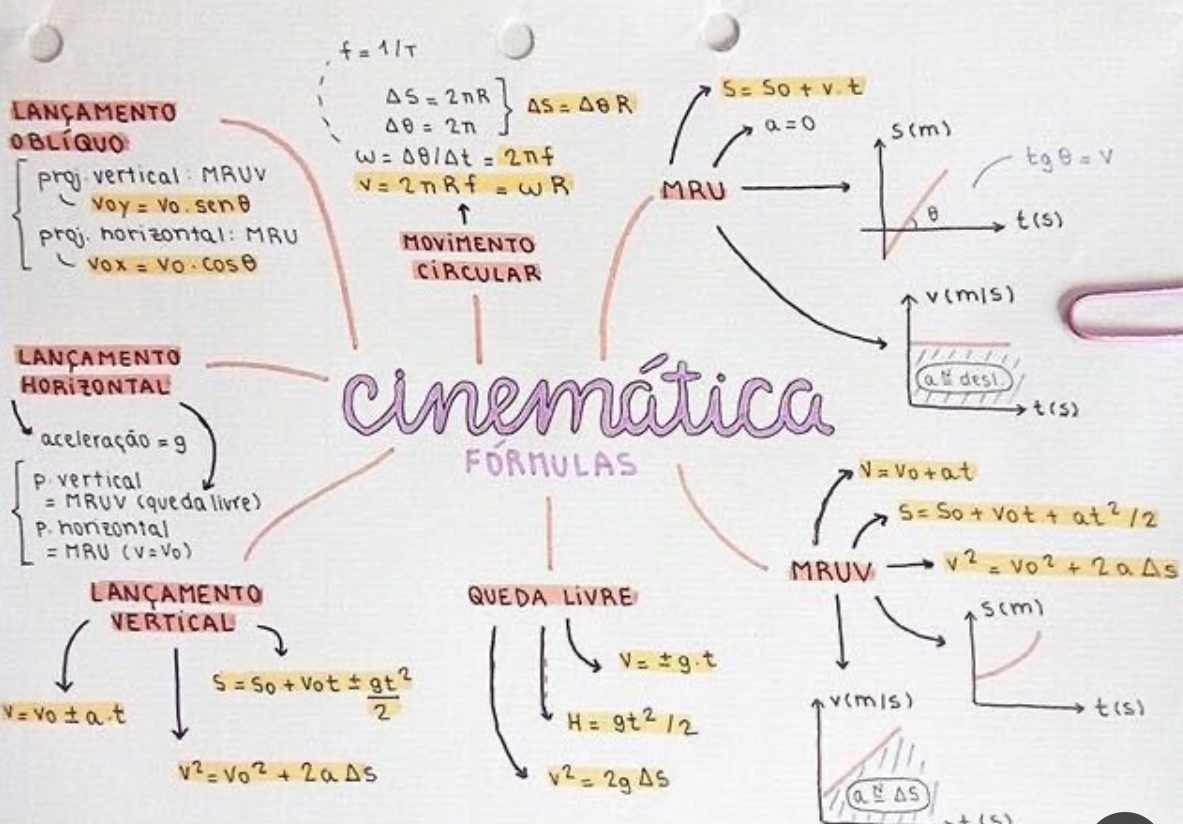 LANÇAMENTO
OBLÍQUO
proj. vertical: MRUV
voy = vo. senθ
proj. horizontal: MRU
vox = vo. cosθ
f = 1/T
ΔS = 2πR
Δθ = 2π
ΔS = Δθ R
ω = Δθ/Δt = 2πf
v = 2πRf = ωR
MOVIMENTO
CIRCULAR
S = So + v.t
a = 0
MRU
S(m)
tg θ = v
θ
t(s)
v(m/s)
a N= desl.
t(s)
LANÇAMENTO
HORIZONTAL
aceleração = g
p. vertical
= MRUV (queda livre)
p. horizontal
= MRU (v=vo)
cinemática
FÓRMULAS
LANÇAMENTO
VERTICAL
v = vo ± a.t
S = So + vot ± gt²/2
v² = vo² + 2aΔs
QUEDA LIVRE
v = ± g.t
H = gt²/2
v² = 2gΔs
MRUV
v = vo + at
S = So + vot + at²/2
v² = vo² + 2aΔs
S(m)
t(s)
v(m/s)
a N= Δs
t(s)